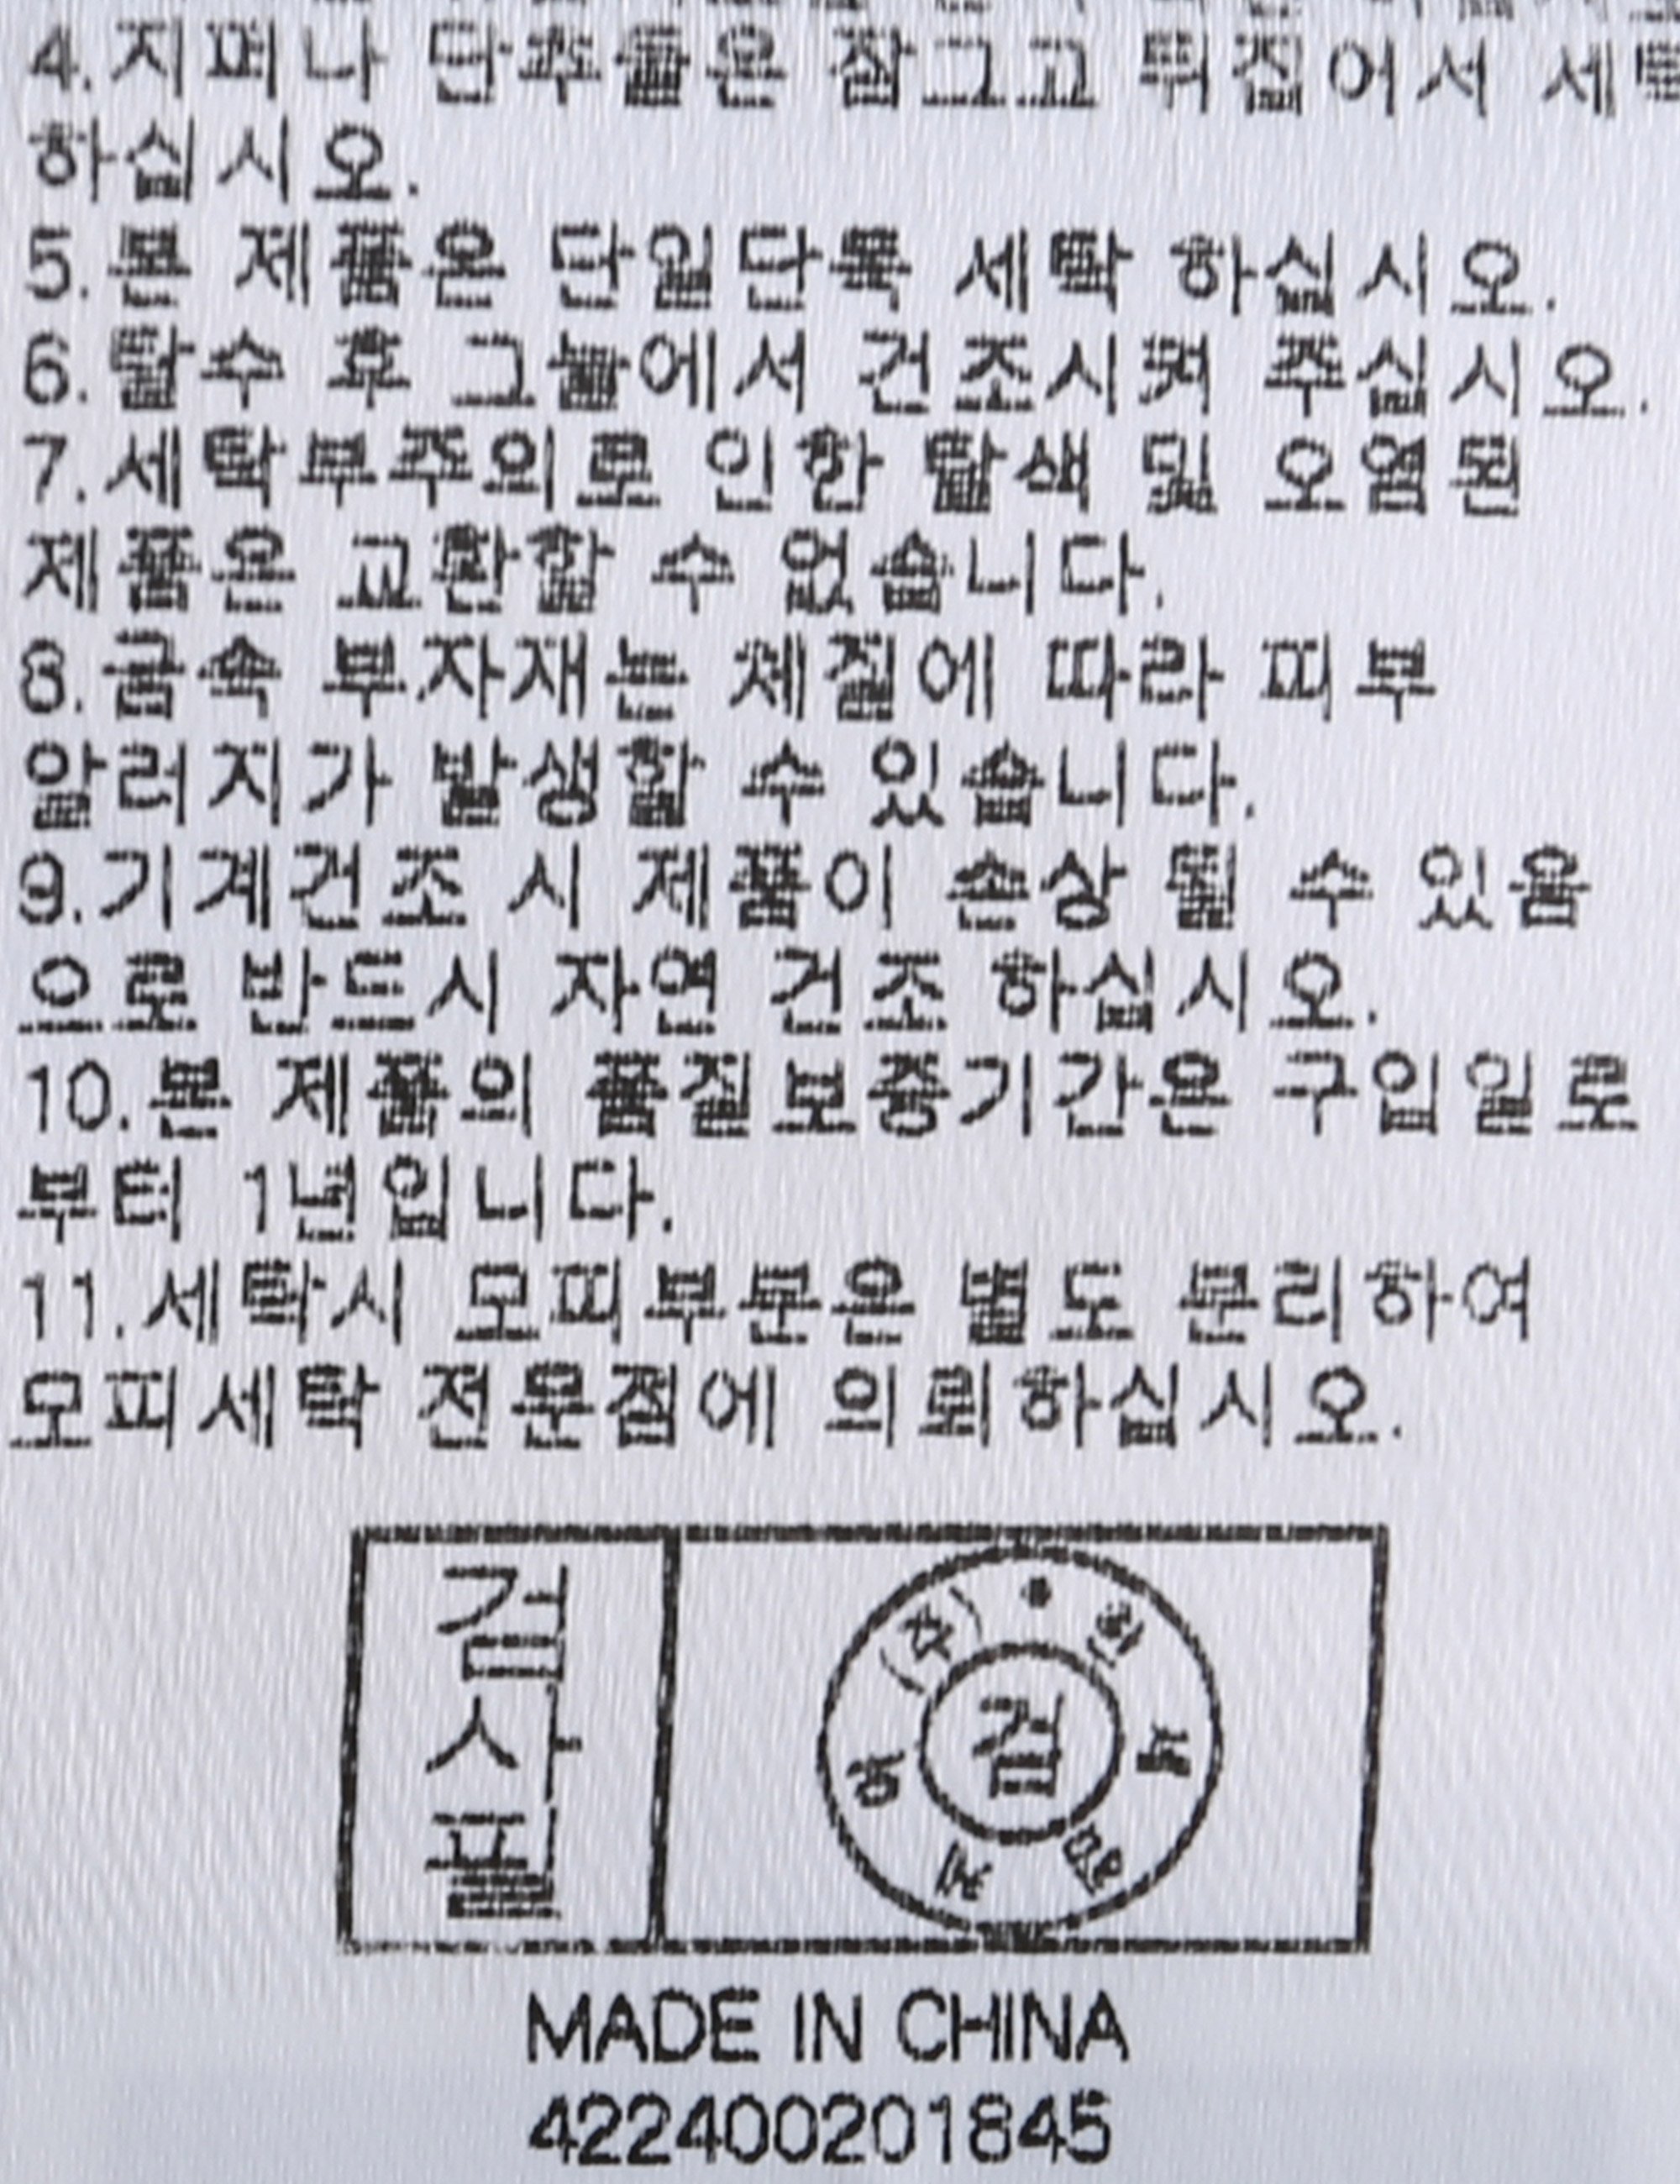 4.지퍼나 단추들은 잠그고 뒤집어서 세탁
하십시오.
5.본 제품은 단일단독 세탁 하십시오.
6.탈수 후 그늘에서 건조시켜 주십시오.
7.세탁부주의로 인한 탈색 및 오염된
제품은 교환할 수 없습니다.
8.금속 부자재는 체질에 따라 피부
알러지가 발생할 수 있습니다.
9.기계건조 시 제품이 손상 될 수 있음
으로 반드시 자연 건조 하십시오.
10.본 제품의 품질보증기간은 구입일로
부터 1년입니다.
11.세탁시 모피부분은 별도 분리하여
모피세탁 전문점에 의뢰하십시오.
검사필
(주)
검
MADE IN CHINA
422400201845